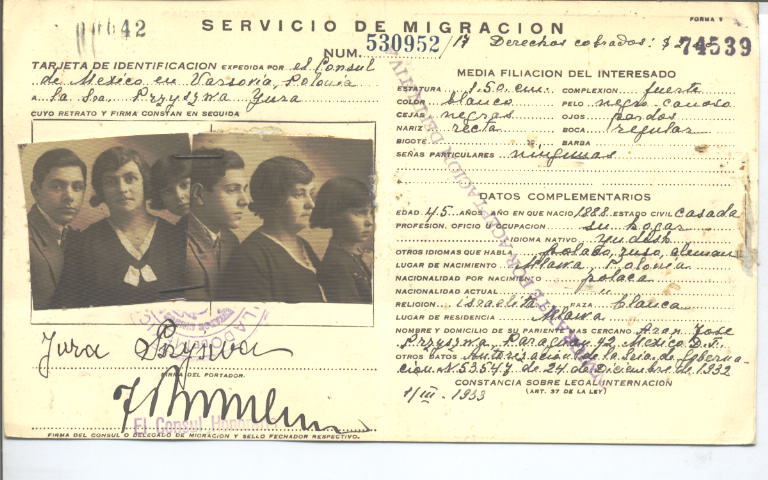 00642
SERVICIO DE MIGRACION
FORMA 9
NUM. 530952/17 Derechos cobrados: $
74539
TARJETA DE IDENTIFICACION EXPEDIDA POR el Consul
de Mexico en Varsovia, Polonia
A La Sra. Przyszwa Yura
CUYO RETRATO Y FIRMA CONSTAN EN SEGUIDA
Jura Przyszwa
FIRMA DEL PORTADOR.
El Consul Honorario
FIRMA DEL CONSUL O DELEGADO DE MIGRACION Y SELLO FECHADOR RESPECTIVO.
MEDIA FILIACION DEL INTERESADO
ESTATURA 1.50 cm. COMPLEXION fuerte
COLOR blanco PELO negro-canoso
CEJAS negras OJOS pardos
NARIZ recta BOCA regular
BIGOTE BARBA
SEÑAS PARTICULARES ningunas
DATOS COMPLEMENTARIOS
EDAD 45 AÑOS AÑO EN QUE NACIO 1888 ESTADO CIVIL casada
PROFESION, OFICIO U OCUPACION su hogar
IDIOMA NATIVO yudesh
OTROS IDIOMAS QUE HABLA polaco, ruso, aleman
LUGAR DE NACIMIENTO Mlawa, Polonia
NACIONALIDAD POR NACIMIENTO polaca
NACIONALIDAD ACTUAL "
RELIGION israelita RAZA blanca
LUGAR DE RESIDENCIA Mlawa
NOMBRE Y DOMICILIO DE SU PARIENTE MAS CERCANO Aran Jose
Przyszwa, Paraguay 42, Mexico D.F.
OTROS DATOS Autorizacion de la Sria. de Goberna-
cion N. 53547 de 24 de Diciembre de 1932
CONSTANCIA SOBRE LEGAL INTERNACION
(ART. 37 DE LA LEY)
1/III - 1933